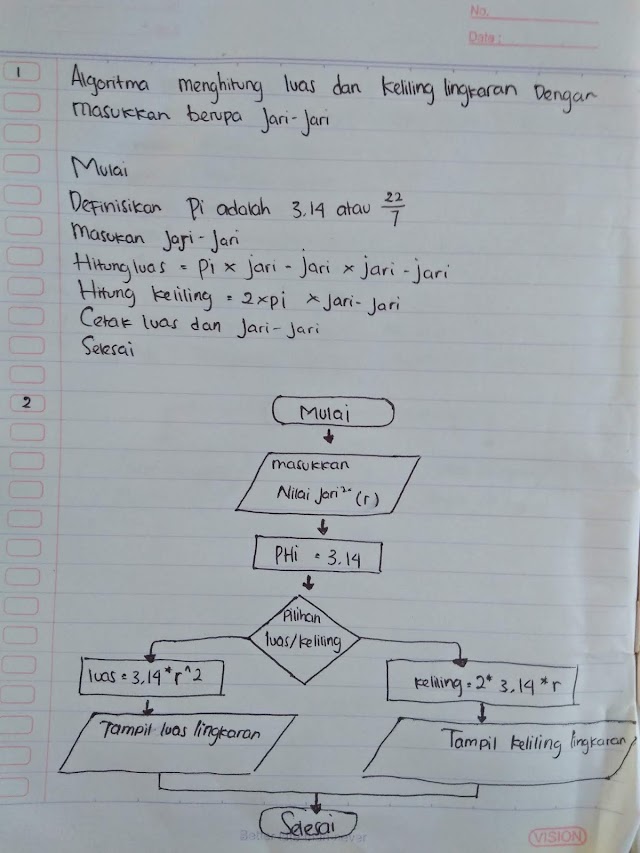 No.
Date:
1
Algoritma menghitung luas dan keliling lingkaran Dengan
masukkan berupa Jari-Jari
Mulai
Definisikan Pi adalah 3.14 atau 22/7
Masukan Jari-Jari
Hitung luas = Pi x jari - jari x jari - jari
Hitung keliling = 2 x pi x Jari- Jari
Cetak luas dan Jari-Jari
Selesai
2
Mulai
masukkan
Nilai Jari²· (r)
PHi = 3.14
Pilihan
luas/keliling
luas = 3.14*r^2
keliling = 2* 3.14 *r
Tampil luas lingkaran
Tampil keliling lingkaran
Selesai
VISION